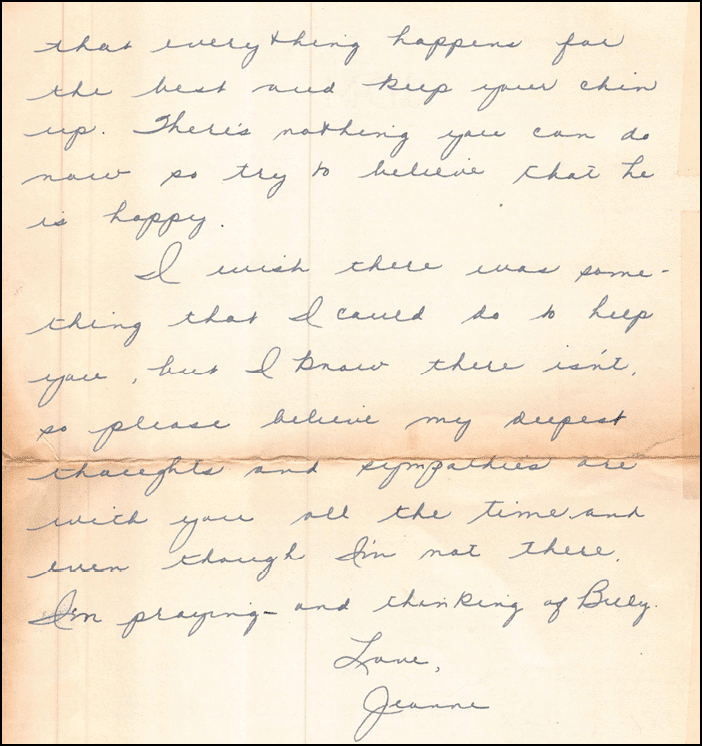 that everything happens for
the best and keep your chin
up. There's nothing you can do
now so try to believe that he
is happy.
I wish there was some-
thing that I could do to help
you, but I know there isn't,
so please believe my deepest
thoughts and sympathies are
with you all the time and
even though I'm not there.
I'm praying - and thinking of Billy.
Love,
Jeanne